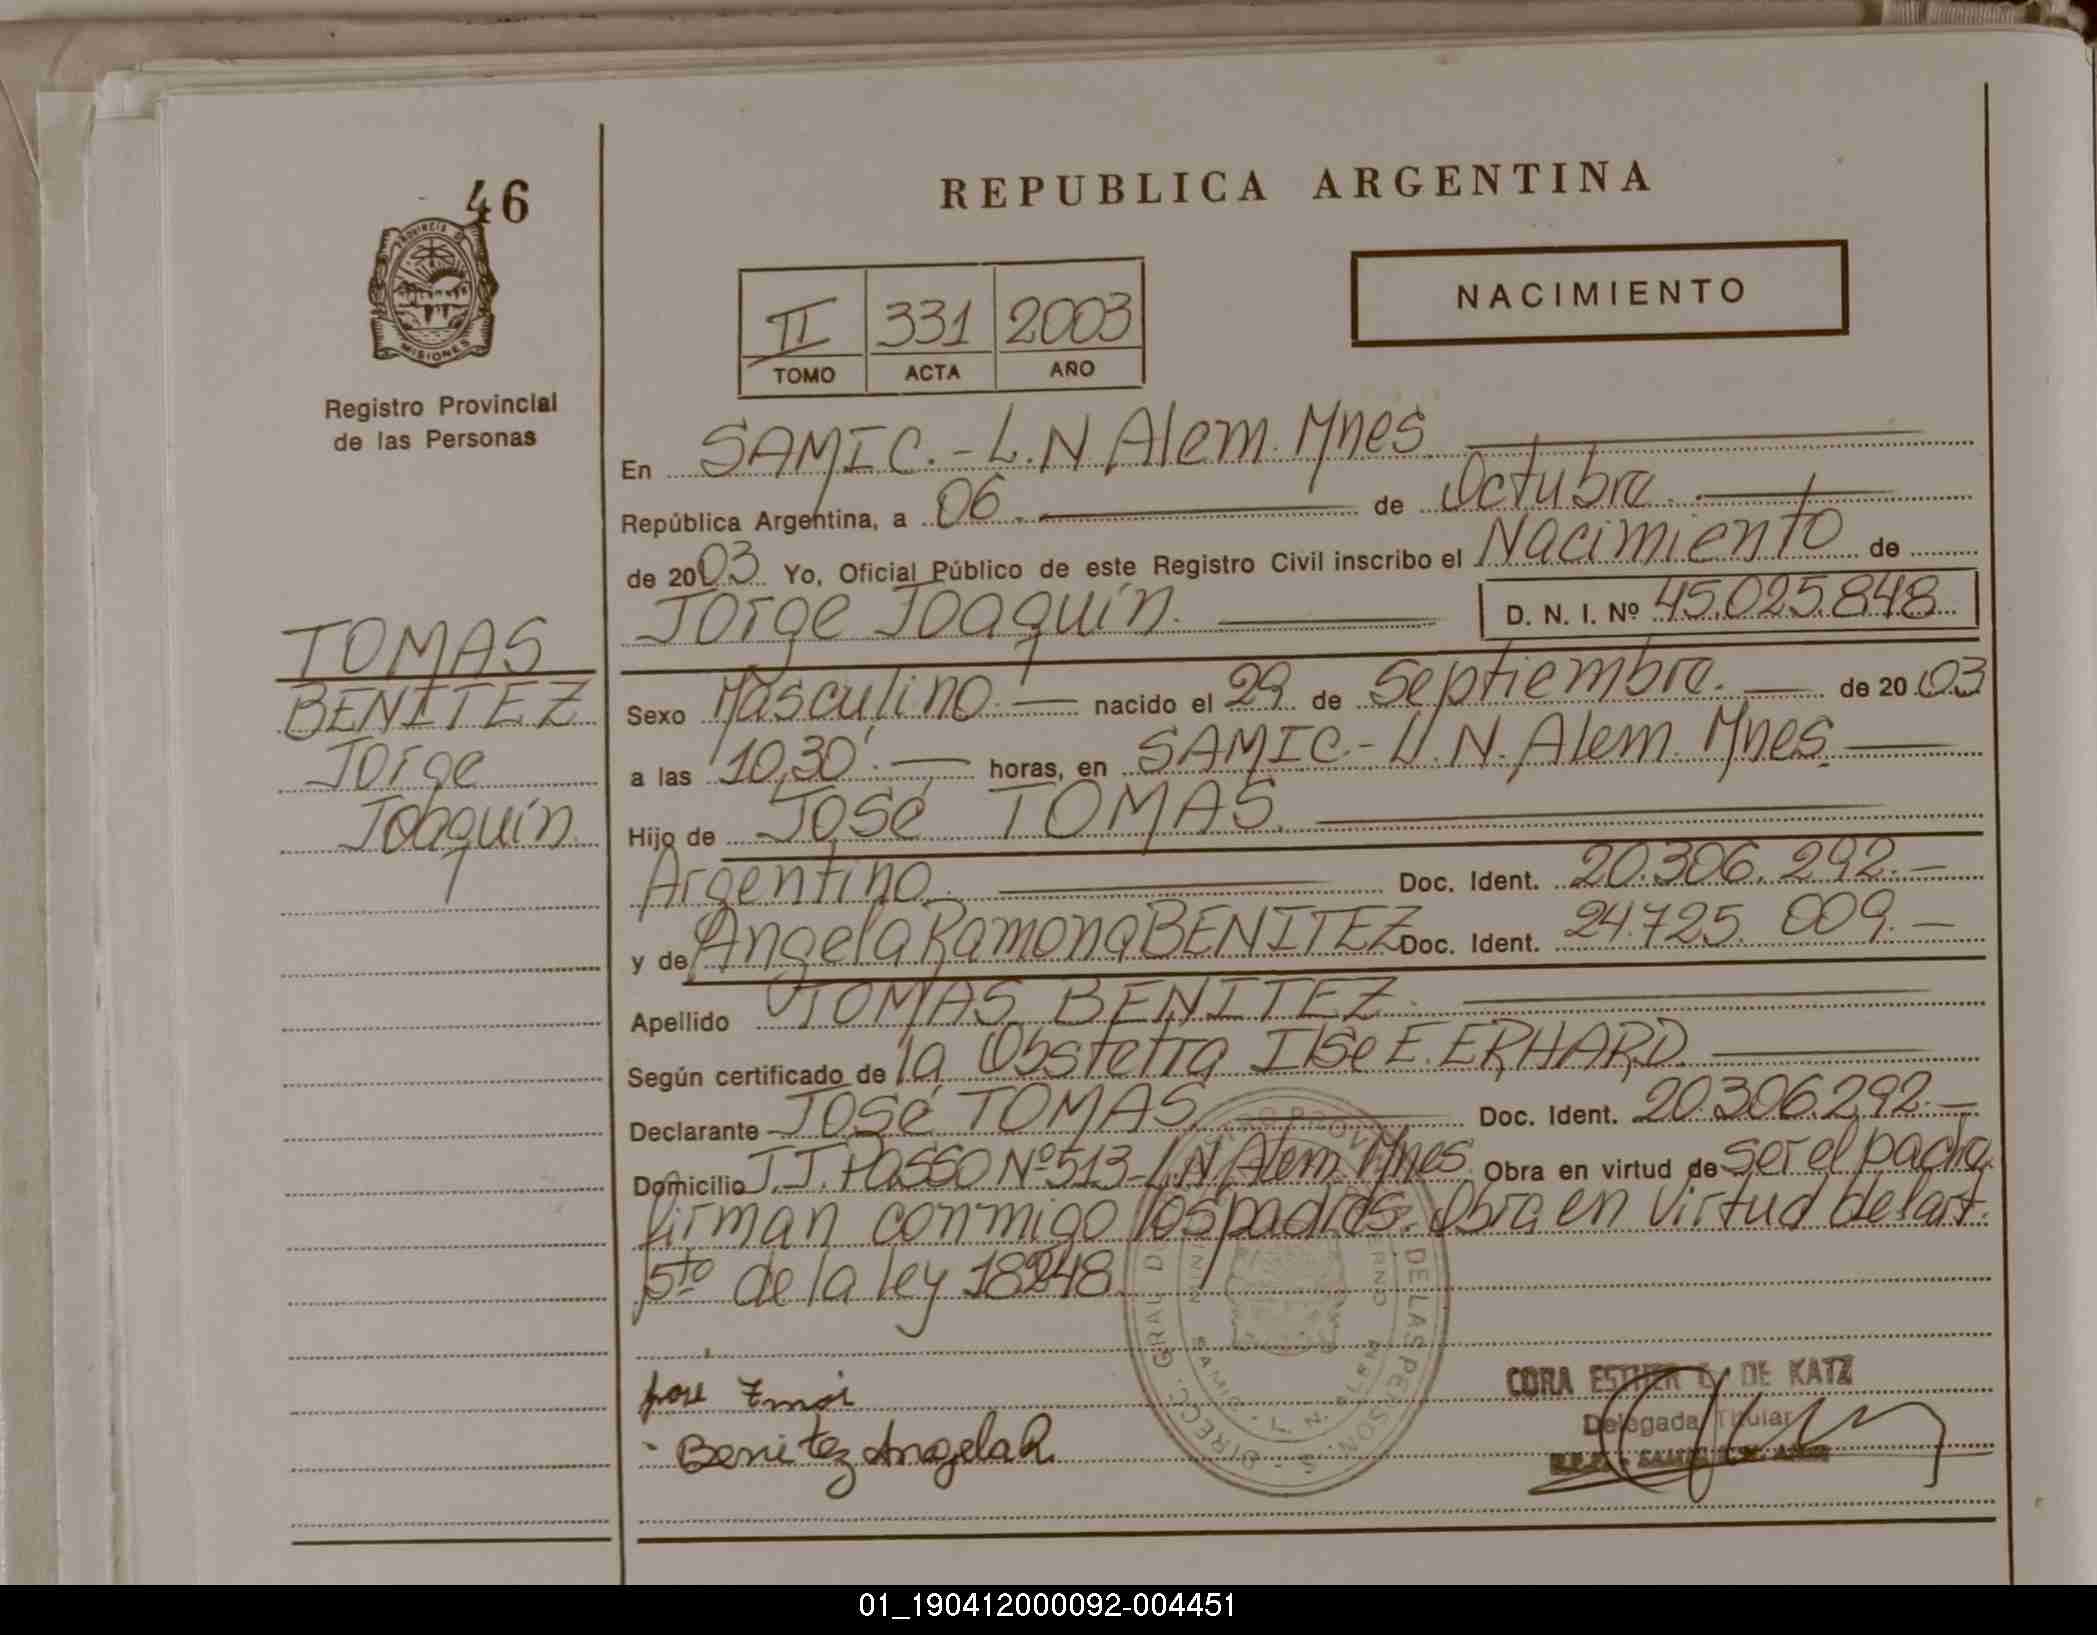 46
PROVINCIA DE
MISIONES
Registro Provincial
de las Personas
TOMAS
BENITEZ
Jorge
Joaquín.
REPUBLICA ARGENTINA
II 331 2003
TOMO ACTA AÑO
NACIMIENTO
En SAMIC.- L.N. Alem. Mnes.
República Argentina, a 06. de Octubre.
de 2003 Yo, Oficial Público de este Registro Civil inscribo el Nacimiento de
Jorge Joaquín. D. N. I. Nº 45.025.848
Sexo Masculino.- nacido el 29 de Septiembre. de 2003
a las 10,30'.- horas, en SAMIC.- L.N. Alem. Mnes.
Hijo de José TOMAS.
Argentino. Doc. Ident. 20.306.292.-
y de Angela Ramona BENITEZ Doc. Ident. 24.725.009.-
Apellido TOMAS BENITEZ.
Según certificado de la Obstetra Ilse E. ERHARD.
Declarante José TOMAS. Doc. Ident. 20.306.292.-
Domicilio J.J. PASSO Nº 513-L.N. Alem Mnes. Obra en virtud de ser el padre
firman conmigo los padres. Obra en virtud del art.
5to de la ley 18248.
Benitez Angela R.
CORA ESTHER DE KATZ
Delegada Titular
DIREC. GRAL. DE LAS PERSONAS
SAMIC. - L. N. ALEM
01_190412000092-004451